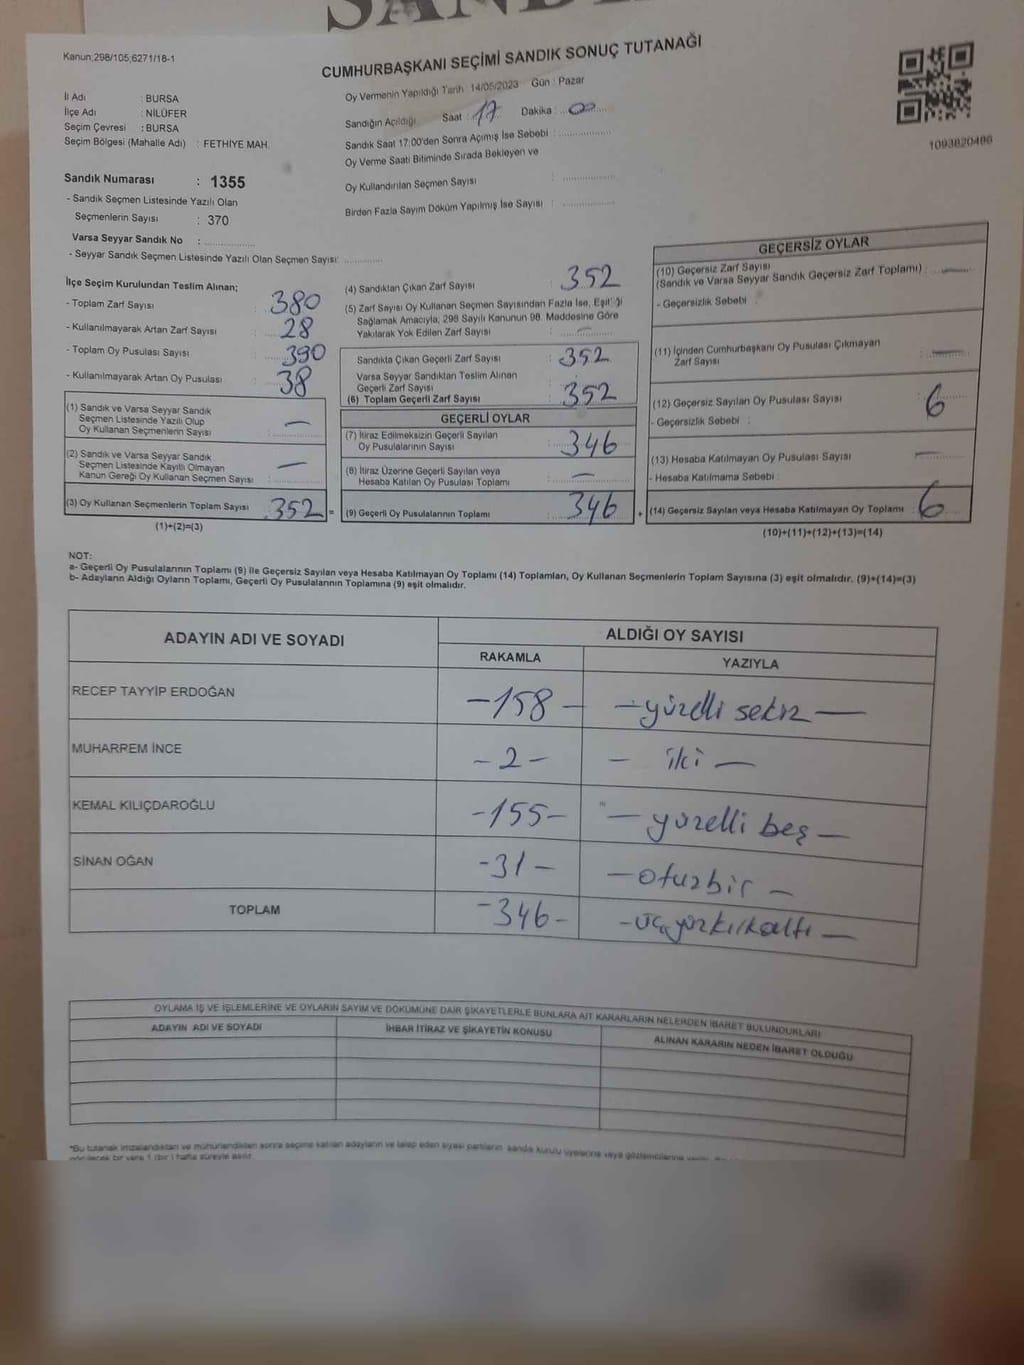 Kanun;298/105;6271/18-1
CUMHURBAŞKANI SEÇİMİ SANDIK SONUÇ TUTANAĞI
1093820486
İl Adı : BURSA
İlçe Adı : NİLÜFER
Seçim Çevresi : BURSA
Seçim Bölgesi (Mahalle Adı) : FETHİYE MAH.
Oy Vermenin Yapıldığı Tarih 14/05/2023 Gün : Pazar
Sandığın Açıldığı Saat : 17 Dakika : 00
Sandık Saat 17:00'den Sonra Açımış İse Sebebi :
Oy Verme Saati Bitiminde Sırada Bekleyen ve
Oy Kullandırılan Seçmen Sayısı :
Birden Fazla Sayım Döküm Yapılmış İse Sayısı :
Sandık Numarası : 1355
- Sandık Seçmen Listesinde Yazılı Olan
Seçmenlerin Sayısı : 370
Varsa Seyyar Sandık No :
- Seyyar Sandık Seçmen Listesinde Yazılı Olan Seçmen Sayısı:
İlçe Seçim Kurulundan Teslim Alınan;
- Toplam Zarf Sayısı : 380
- Kullanılmayarak Artan Zarf Sayısı : 28
- Toplam Oy Pusulası Sayısı : 390
- Kullanılmayarak Artan Oy Pusulası : 38
(1) Sandık ve Varsa Seyyar Sandık
Seçmen Listesinde Yazılı Olup
Oy Kullanan Seçmenlerin Sayısı : —
(2) Sandık ve Varsa Seyyar Sandık
Seçmen Listesinde Kayıtlı Olmayan
Kanun Gereği Oy Kullanan Seçmen Sayısı : —
(3) Oy Kullanan Seçmenlerin Toplam Sayısı : 352 =
(1)+(2)=(3)
(4) Sandıktan Çıkan Zarf Sayısı : 352
(5) Zarf Sayısı Oy Kullanan Seçmen Sayısından Fazla İse, Eşitliği
Sağlamak Amacıyla, 298 Sayılı Kanunun 98. Maddesine Göre
Yakılarak Yok Edilen Zarf Sayısı : —
Sandıkta Çıkan Geçerli Zarf Sayısı : 352
Varsa Seyyar Sandıktan Teslim Alınan
Geçerli Zarf Sayısı :
(6) Toplam Geçerli Zarf Sayısı : 352
GEÇERLİ OYLAR
(7) İtiraz Edilmeksizin Geçerli Sayılan
Oy Pusulalarının Sayısı : 346
(8) İtiraz Üzerine Geçerli Sayılan veya
Hesaba Katılan Oy Pusulası Toplamı : —
(9) Geçerli Oy Pusulalarının Toplamı : 346 +
GEÇERSİZ OYLAR
(10) Geçersiz Zarf Sayısı
(Sandık ve Varsa Seyyar Sandık Geçersiz Zarf Toplamı) : —
- Geçersizlik Sebebi :
(11) İçinden Cumhurbaşkanı Oy Pusulası Çıkmayan
Zarf Sayısı : —
(12) Geçersiz Sayılan Oy Pusulası Sayısı : 6
- Geçersizlik Sebebi :
(13) Hesaba Katılmayan Oy Pusulası Sayısı : —
- Hesaba Katılmama Sebebi :
(14) Geçersiz Sayılan veya Hesaba Katılmayan Oy Toplamı : 6
(10)+(11)+(12)+(13)=(14)
NOT:
a- Geçerli Oy Pusulalarının Toplamı (9) ile Geçersiz Sayılan veya Hesaba Katılmayan Oy Toplamı (14) Toplamları, Oy Kullanan Seçmenlerin Toplam Sayısına (3) eşit olmalıdır. (9)+(14)=(3)
b- Adayların Aldığı Oyların Toplamı, Geçerli Oy Pusulalarının Toplamına (9) eşit olmalıdır.
ADAYIN ADI VE SOYADI ALDIĞI OY SAYISI
RAKAMLA YAZIYLA
RECEP TAYYİP ERDOĞAN -158- -yüzelli sekiz-
MUHARREM İNCE -2- - iki -
KEMAL KILIÇDAROĞLU -155- -yüzelli beş-
SİNAN OĞAN -31- -otuzbir-
TOPLAM -346- -üçyüzkırkaltı-
OYLAMA İŞ VE İŞLEMLERİNE VE OYLARIN SAYIM VE DÖKÜMÜNE DAİR ŞİKAYETLERLE BUNLARA AİT KARARLARIN NELERDEN İBARET BULUNDUKLARI
ADAYIN ADI VE SOYADI İHBAR İTİRAZ VE ŞİKAYETİN KONUSU ALINAN KARARIN NEDEN İBARET OLDUĞU
*Bu tutanak imzalandıktan ve mühürlendikten sonra seçime katılan adayların ve talep eden siyasi partilerin sandık kurulu üyelerine veya gözlemcilerine
görülecek bir yere 1 (bir) hafta süreyle asılır.